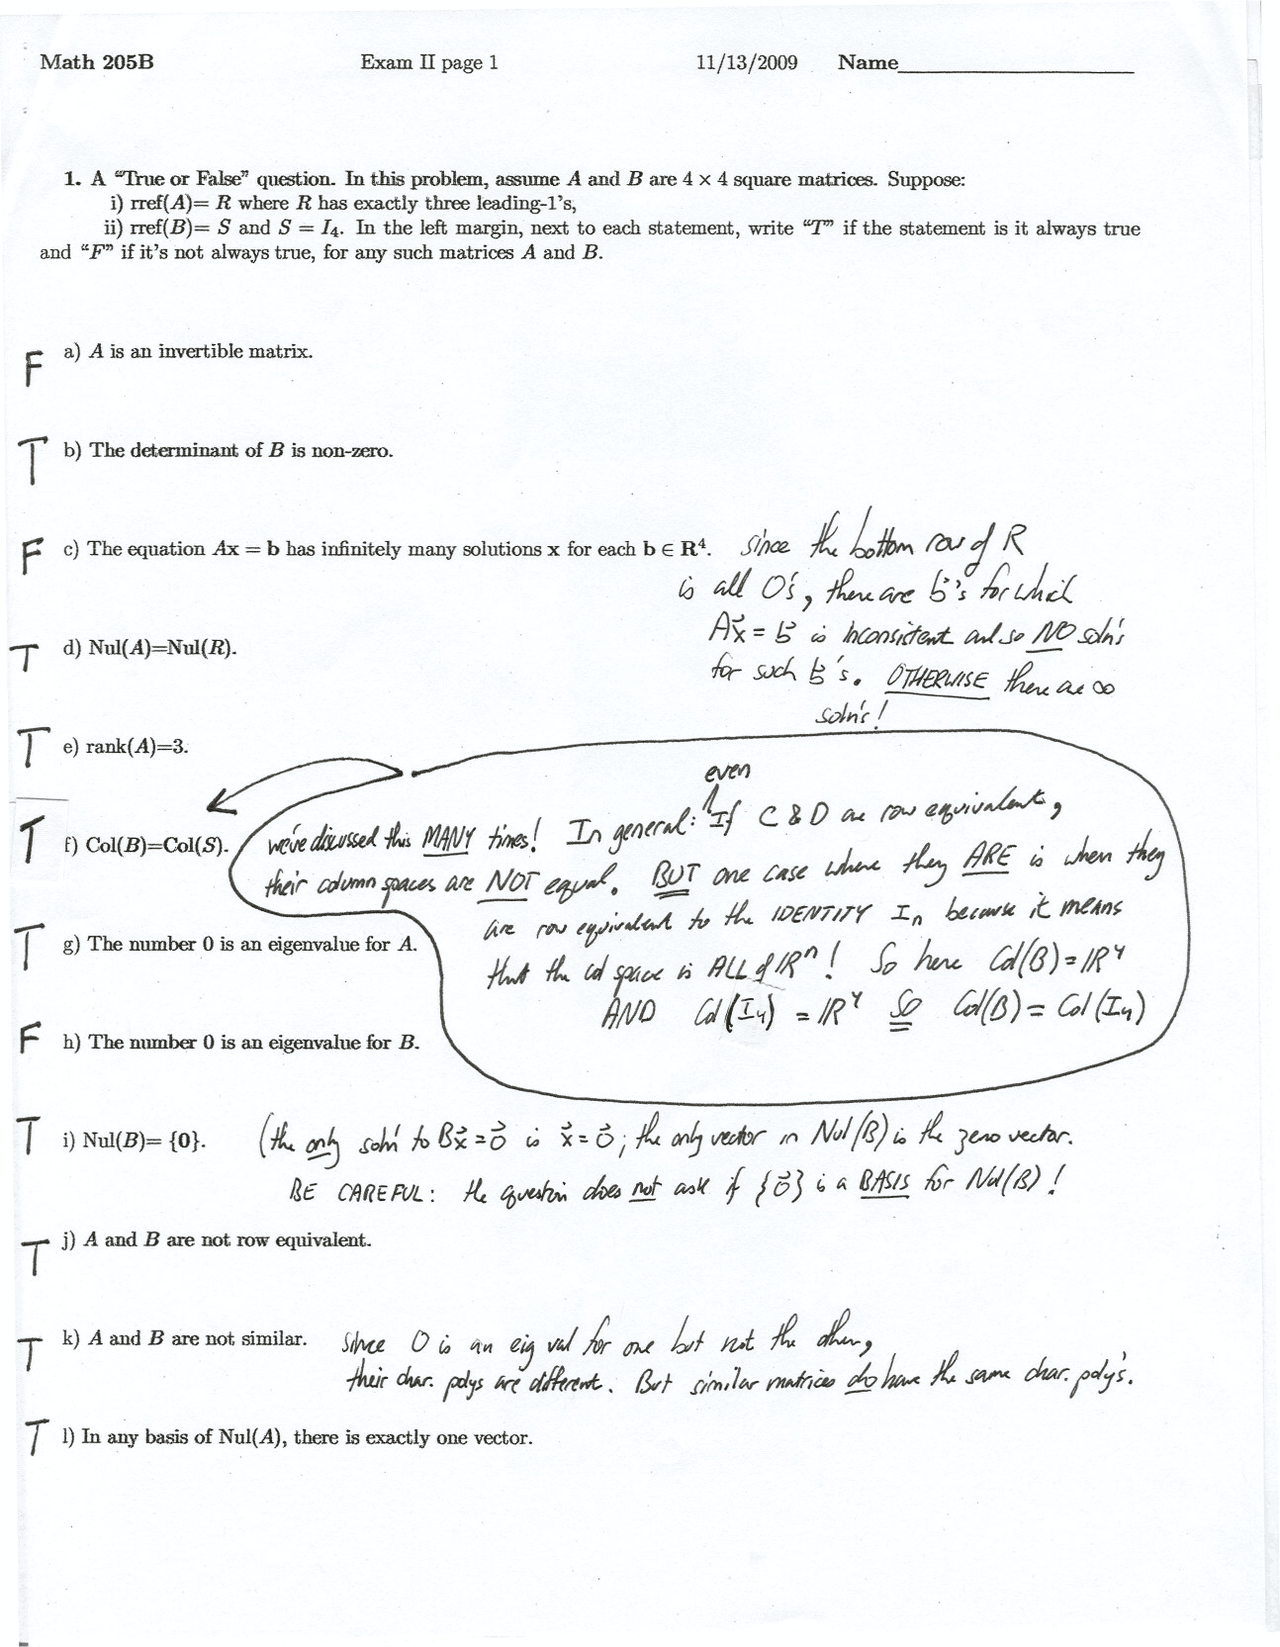 Math 205B Exam II page 1 11/13/2009 Name
1. A “True or False” question. In this problem, assume A and B are 4 × 4 square matrices. Suppose:
i) rref(A)= R where R has exactly three leading-1’s,
ii) rref(B)= S and S = I₄. In the left margin, next to each statement, write “T” if the statement is it always true
and “F” if it’s not always true, for any such matrices A and B.
F a) A is an invertible matrix.
T b) The determinant of B is non-zero.
F c) The equation Ax = b has infinitely many solutions x for each b ∈ R⁴. Since the bottom row of R
is all 0's, there are b⃗'s for which
Ax⃗ = b⃗ is inconsistent and so NO soln's
for such b⃗'s. OTHERWISE there are ∞
soln's!
T d) Nul(A)=Nul(R).
T e) rank(A)=3.
T f) Col(B)=Col(S).
even
we've discussed this MANY times! In general: If C & D are row equivalent,
their column spaces are NOT equal. BUT one case where they ARE is when they
are row equivalent to the IDENTITY Iₙ because it means
that the col space is ALL of ℝⁿ! So here Col(B) = ℝ⁴
AND Col(I₄) = ℝ⁴ SO Col(B) = Col(I₄)
T g) The number 0 is an eigenvalue for A.
F h) The number 0 is an eigenvalue for B.
T i) Nul(B)= {0}. (the only soln to Bx⃗ = 0⃗ is x⃗ = 0⃗; the only vector in Nul(B) is the zero vector.
BE CAREFUL: the question does not ask if {0⃗} is a BASIS for Nul(B)!
T j) A and B are not row equivalent.
T k) A and B are not similar. Since 0 is an eig val for one but not the other,
their char. polys are different. But similar matrices do have the same char. poly's.
T l) In any basis of Nul(A), there is exactly one vector.